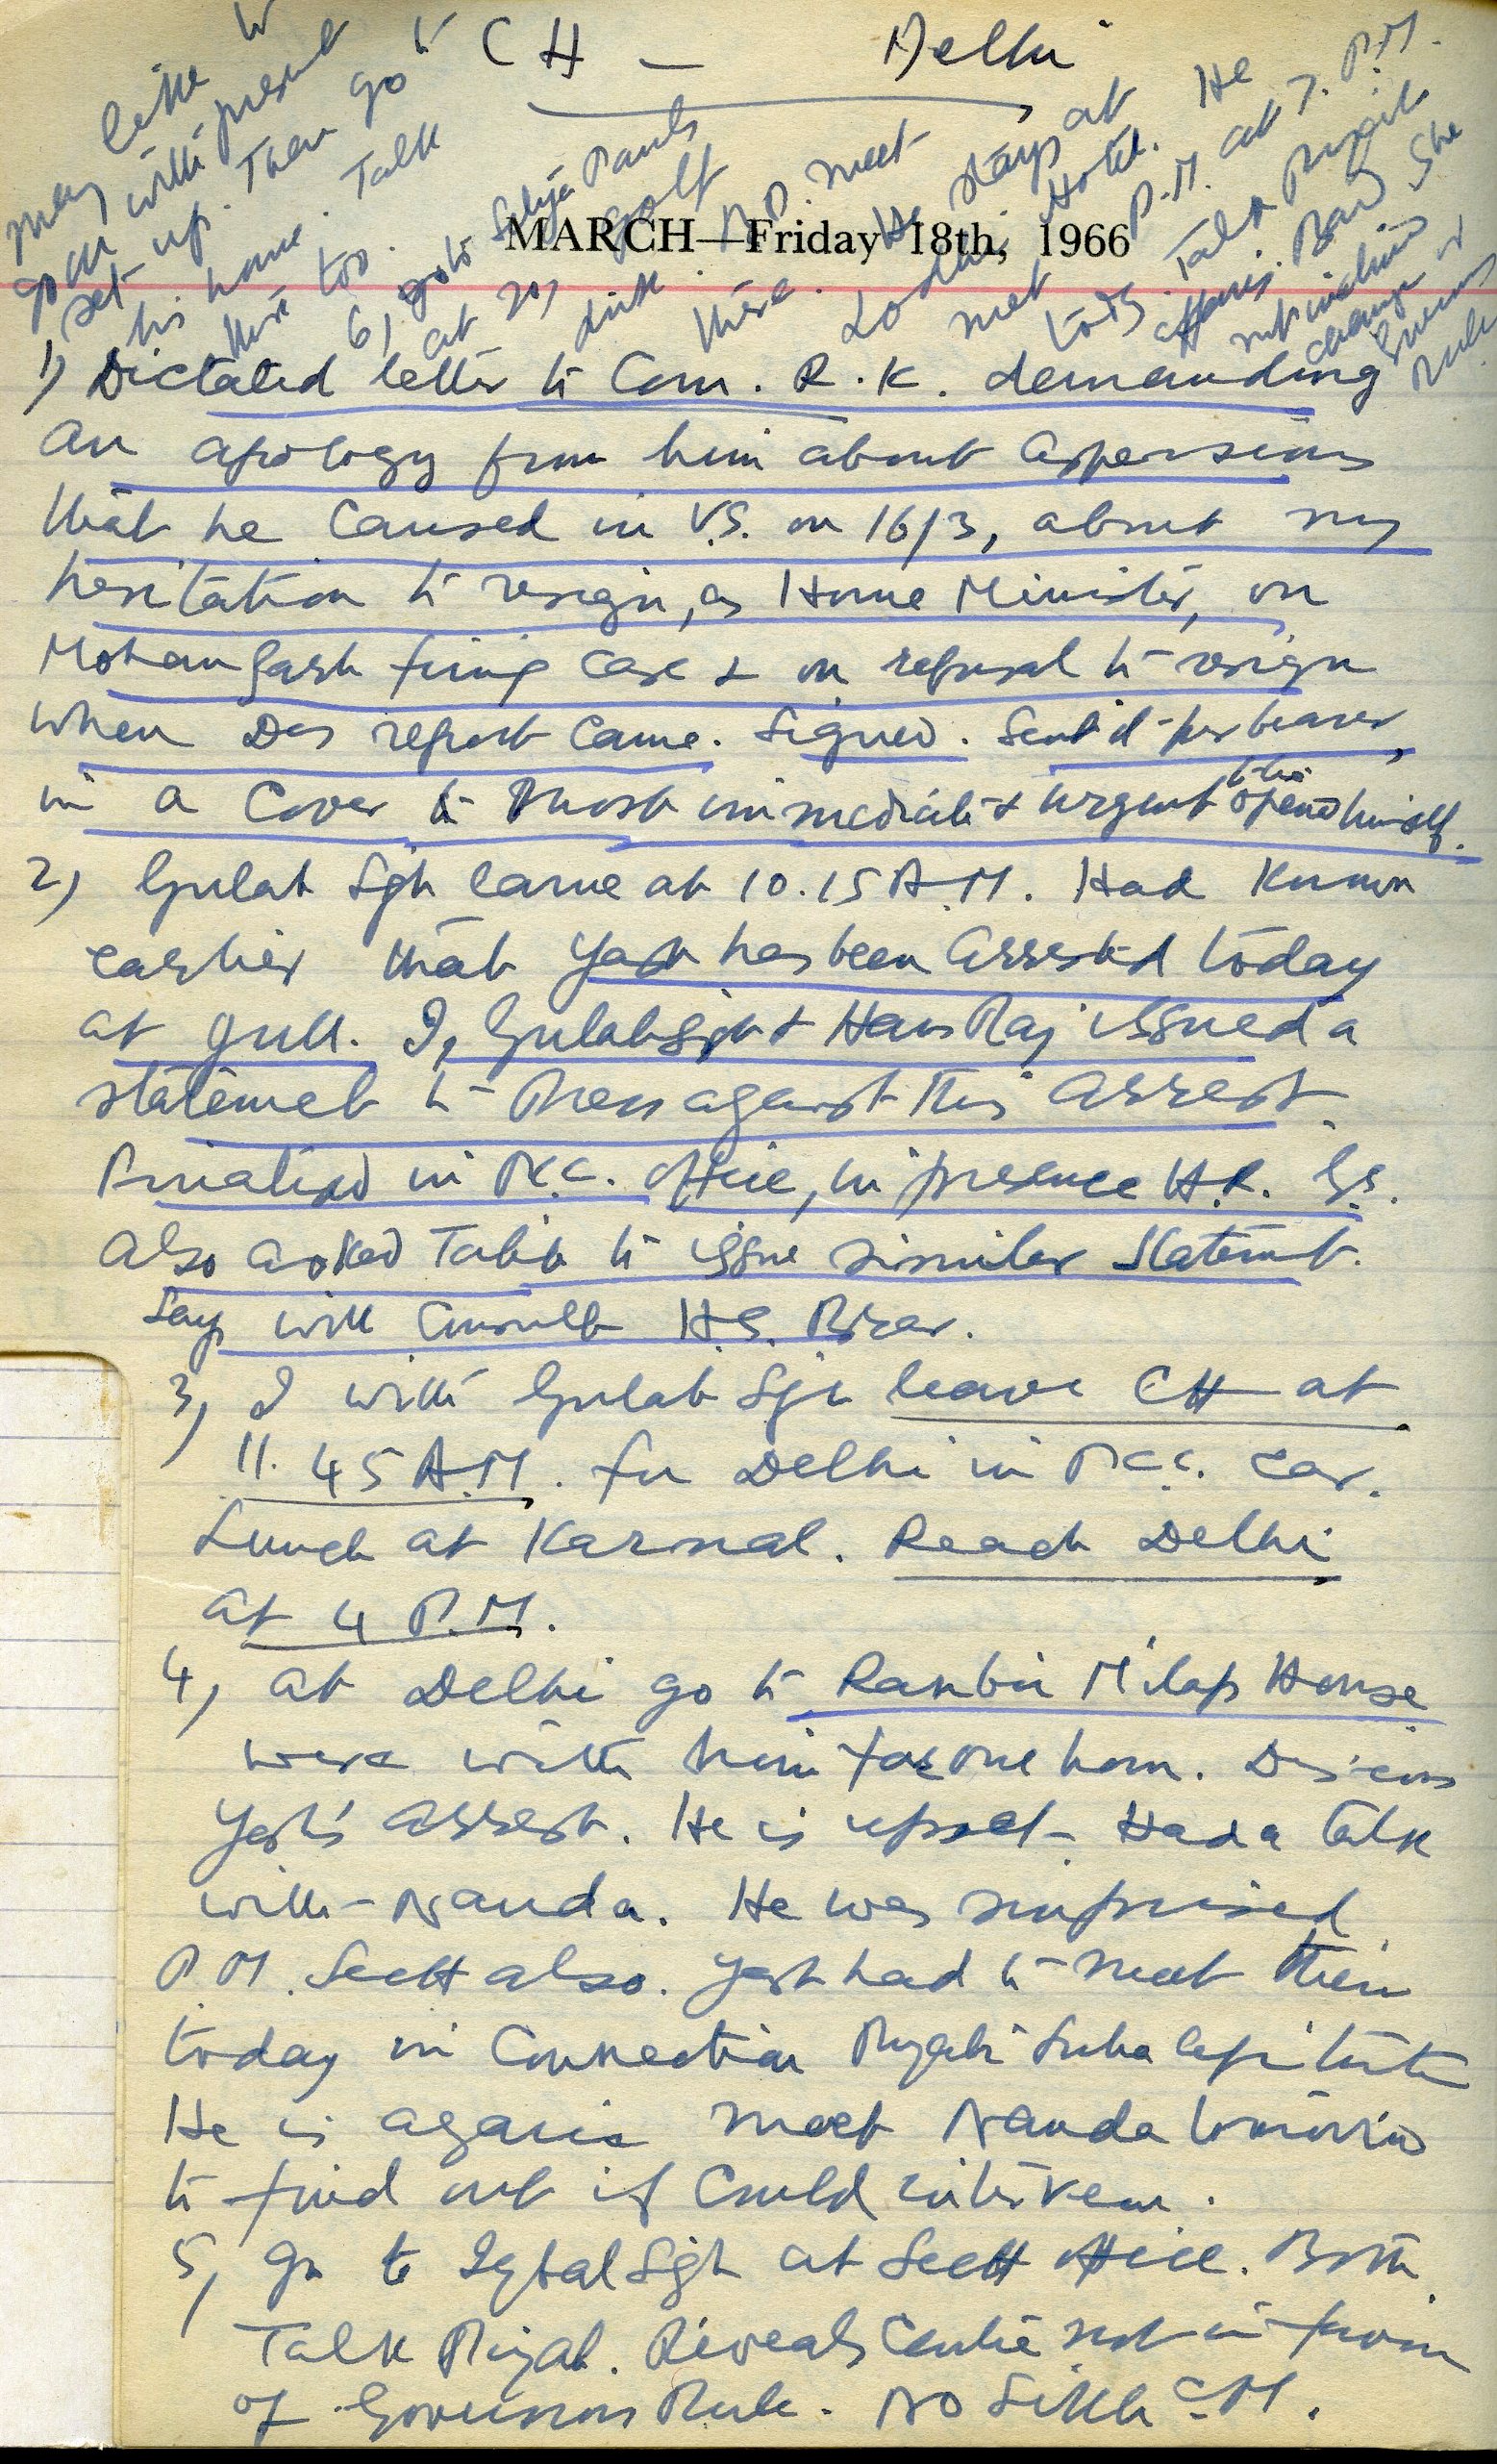 CH — Delhi
MARCH—Friday 18th, 1966
1) Dictated letter to Com. R.K. demanding
an apology from him about aspersions
that he caused in V.S. on 16/3, about my
hesitation to resign, as Home Minister, on
firing case & on refusal to resign
when Das report came. Signed. Sent it per bearer,
in a cover to most immediate & urgent to be opened himself.
2) Gulab Sgh came at 10.15 A.M. Had known
earlier that Yash has been arrested today
at Jull. I, Gulab Sgh & Hans Raj issued a
statemet to Press against this arrest.
Finalised in P.C.C. office, in presence H.R. G.S.
Also asked Talib to issue similar statemt.
Says will consult H.S. Brar.
3) I with Gulab Sgh leave CH at
11.45 A.M. for Delhi in P.C.C. car.
Lunch at Karnal. Reach Delhi
at 4 P.M.
4) At Delhi go to Ranbir Milap House
were with him for one hour. Discuss
Yash's arrest. He is upset. Had a talk
with Nanda. He was surprised
P.M. Sectt also. Yash had to meet them
today in connection Punjabi Suba
He is again meet Nanda tomorrow
to find out if could intervene.
5) Go to Iqbal Sgh at Sectt office. Both
Talk Punjab. Reveals Centre not in favour
of Governors Rule. No Sikh C.M.
6) go to Pauls
at 20, golf
link. meet
there. He stays at
Lodhi Hotel. He
met P.M. at 7. P.M.
today. Talk Punjab
affairs. She
not inclined
change or
Governors
Rule
may
little
go with present
set up. Then go to
his home. Talk
there too.